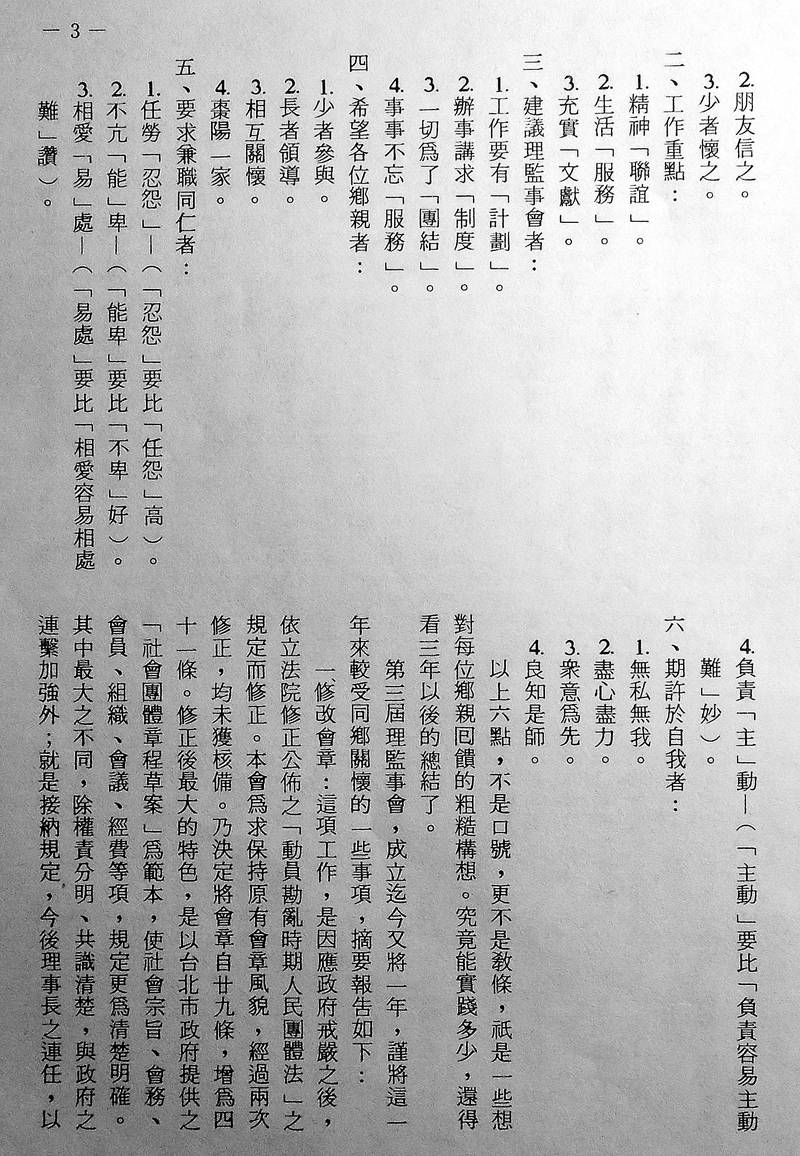 －3－
2.朋友信之。
3.少者懷之。
二、工作重點：
1.精神「聯誼」。
2.生活「服務」。
3.充實「文獻」。
三、建議理監事會者：
1.工作要有「計劃」。
2.辦事講求「制度」。
3.一切為了「團結」。
4.事事不忘「服務」。
四、希望各位鄉親者：
1.少者參與。
2.長者領導。
3.相互關懷。
4.棗陽一家。
五、要求兼職同仁者：
1.任勞「忍怨」—（「忍怨」要比「任怨」高）。
2.不亢「能」卑—（「能卑」要比「不卑」好）。
3.相愛「易」處—（「易處」要比「相愛容易相處
難」讚）。
4.負責「主」動—（「主動」要比「負責容易主動
難」妙）。
六、期許於自我者：
1.無私無我。
2.盡心盡力。
3.衆意為先。
4.良知是師。
以上六點，不是口號，更不是教條，祇是一些想
對每位鄉親回饋的粗糙構想。究竟能實踐多少，還得
看三年以後的總結了。
第三屆理監事會，成立迄今又將一年，謹將這一
年來較受同鄉關懷的一些事項，摘要報告如下：
一、修改會章：這項工作，是因應政府戒嚴之後，
依立法院修正公佈之「動員勘亂時期人民團體法」之
規定而修正。本會為求保持原有會章風貌，經過兩次
修正，均未獲核備。乃決定將會章自廿九條，增為四
十一條。修正後最大的特色，是以台北市政府提供之
「社會團體章程草案」為範本，使社會宗旨、會務、
會員、組織、會議、經費等項，規定更為清楚明確。
其中最大之不同，除權責分明、共識清楚，與政府之
連繫加強外；就是接納規定，今後理事長之連任，以